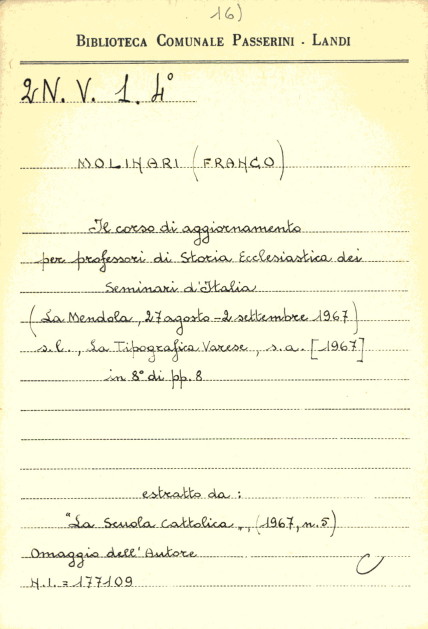 16)
BIBLIOTECA COMUNALE PASSERINI - LANDI
2N. V. 1. 4°
MOLINARI (FRANCO)
Il corso di aggiornamento
per professori di Storia Ecclesiastica dei
Seminari d'Italia
(La Mendola, 27 agosto - 2 settembre 1967)
s. l., La Tipografica Varese, s. a. [1967]
in 8° di pp. 8
estratto da :
"La Scuola Cattolica„, (1967, n. 5)
Omaggio dell'Autore
N.I. = 177109